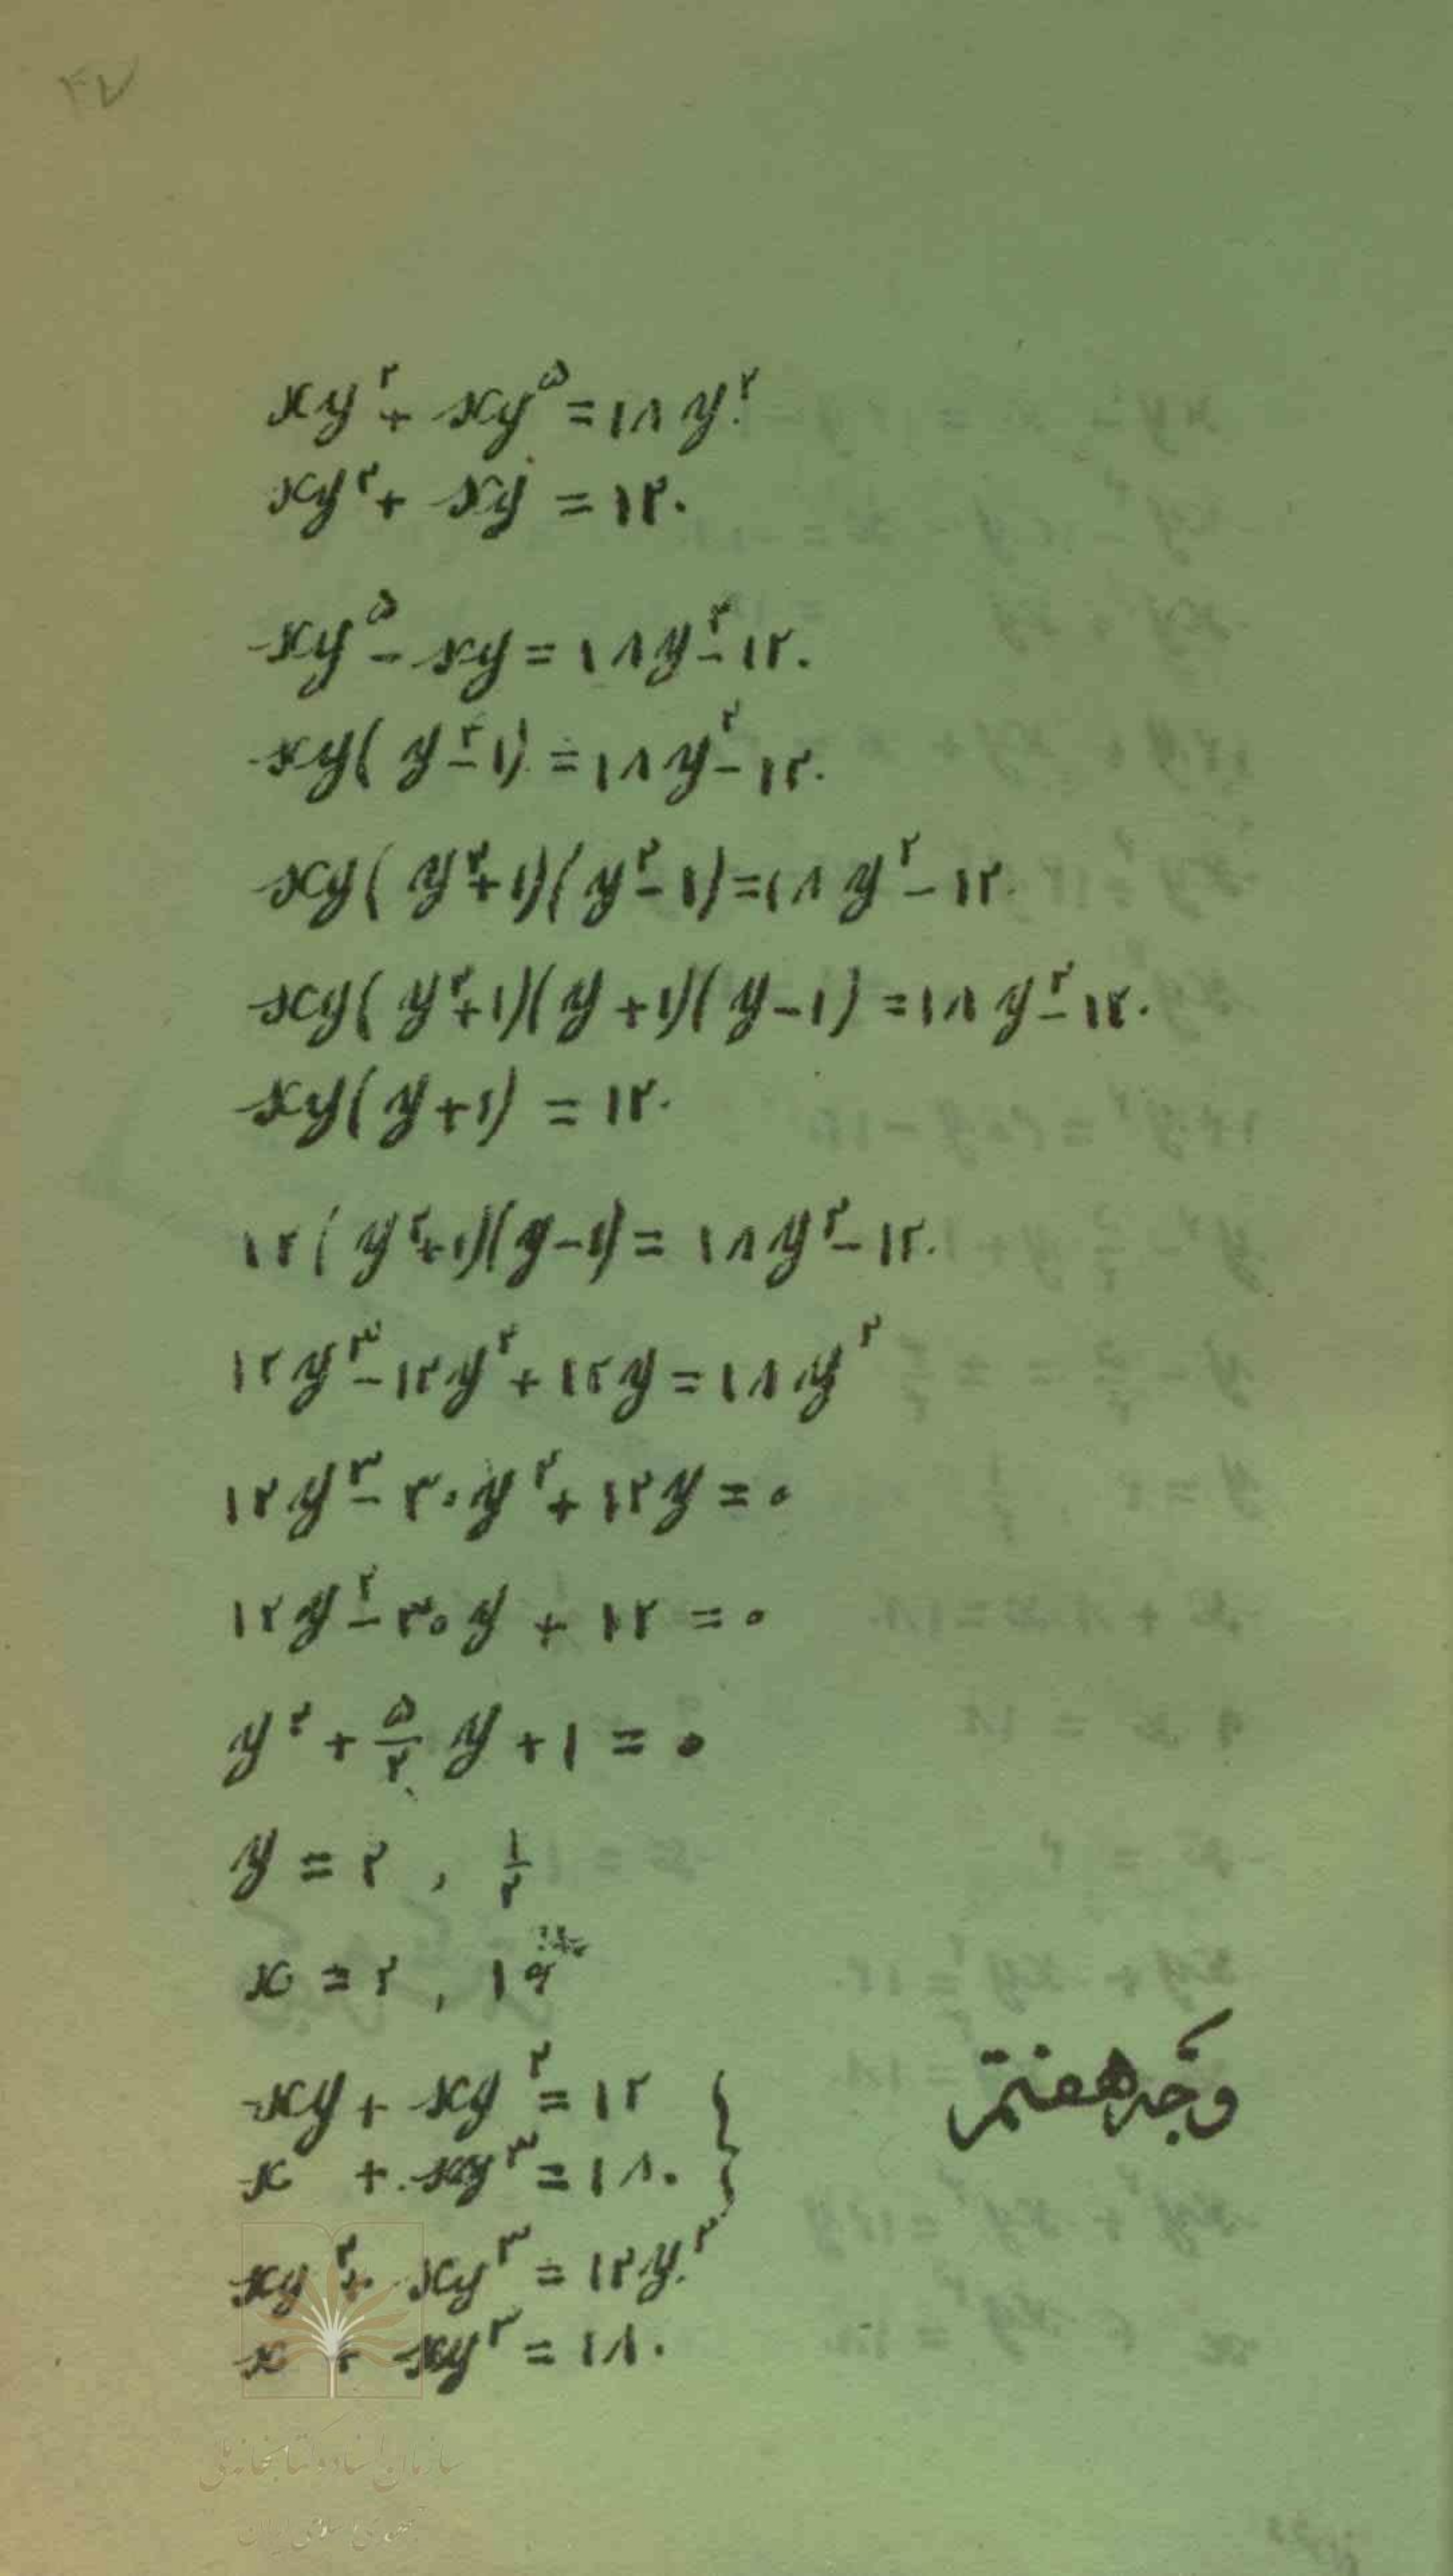 ۴۷
xy^۲ + xy^۵ = ۱۸y^۲.
xy^۲ + xy = ۱۲.
xy^۵ - xy = ۱۸y^۲ - ۱۲.
xy(y^۴ - ۱) = ۱۸y^۲ - ۱۲.
xy(y^۲ + ۱)(y^۲ - ۱) = ۱۸y^۲ - ۱۲.
xy(y^۲ + ۱)(y + ۱)(y - ۱) = ۱۸y^۲ - ۱۲.
xy(y + ۱) = ۱۲.
۱۲(y^۲ + ۱)(y - ۱) = ۱۸y^۲ - ۱۲.
۱۲y^۳ - ۱۲y^۲ + ۱۲y = ۱۸y^۲
۱۲y^۳ - ۳۰y^۲ + ۱۲y = ۰
۱۲y^۲ - ۳۰y + ۱۲ = ۰
y^۲ + ۵/۲ y + ۱ = ۰
y = ۲ , ۱/۲
x = ۲ , ۱۶
وجه هفتم
xy + xy^۲ = ۱۲ }
x + xy^۳ = ۱۸. }
xy^۲ + xy^۳ = ۱۲y.
x + xy^۳ = ۱۸.
سازمان اسناد و کتابخانه ملی
جمهوری اسلامی ایران